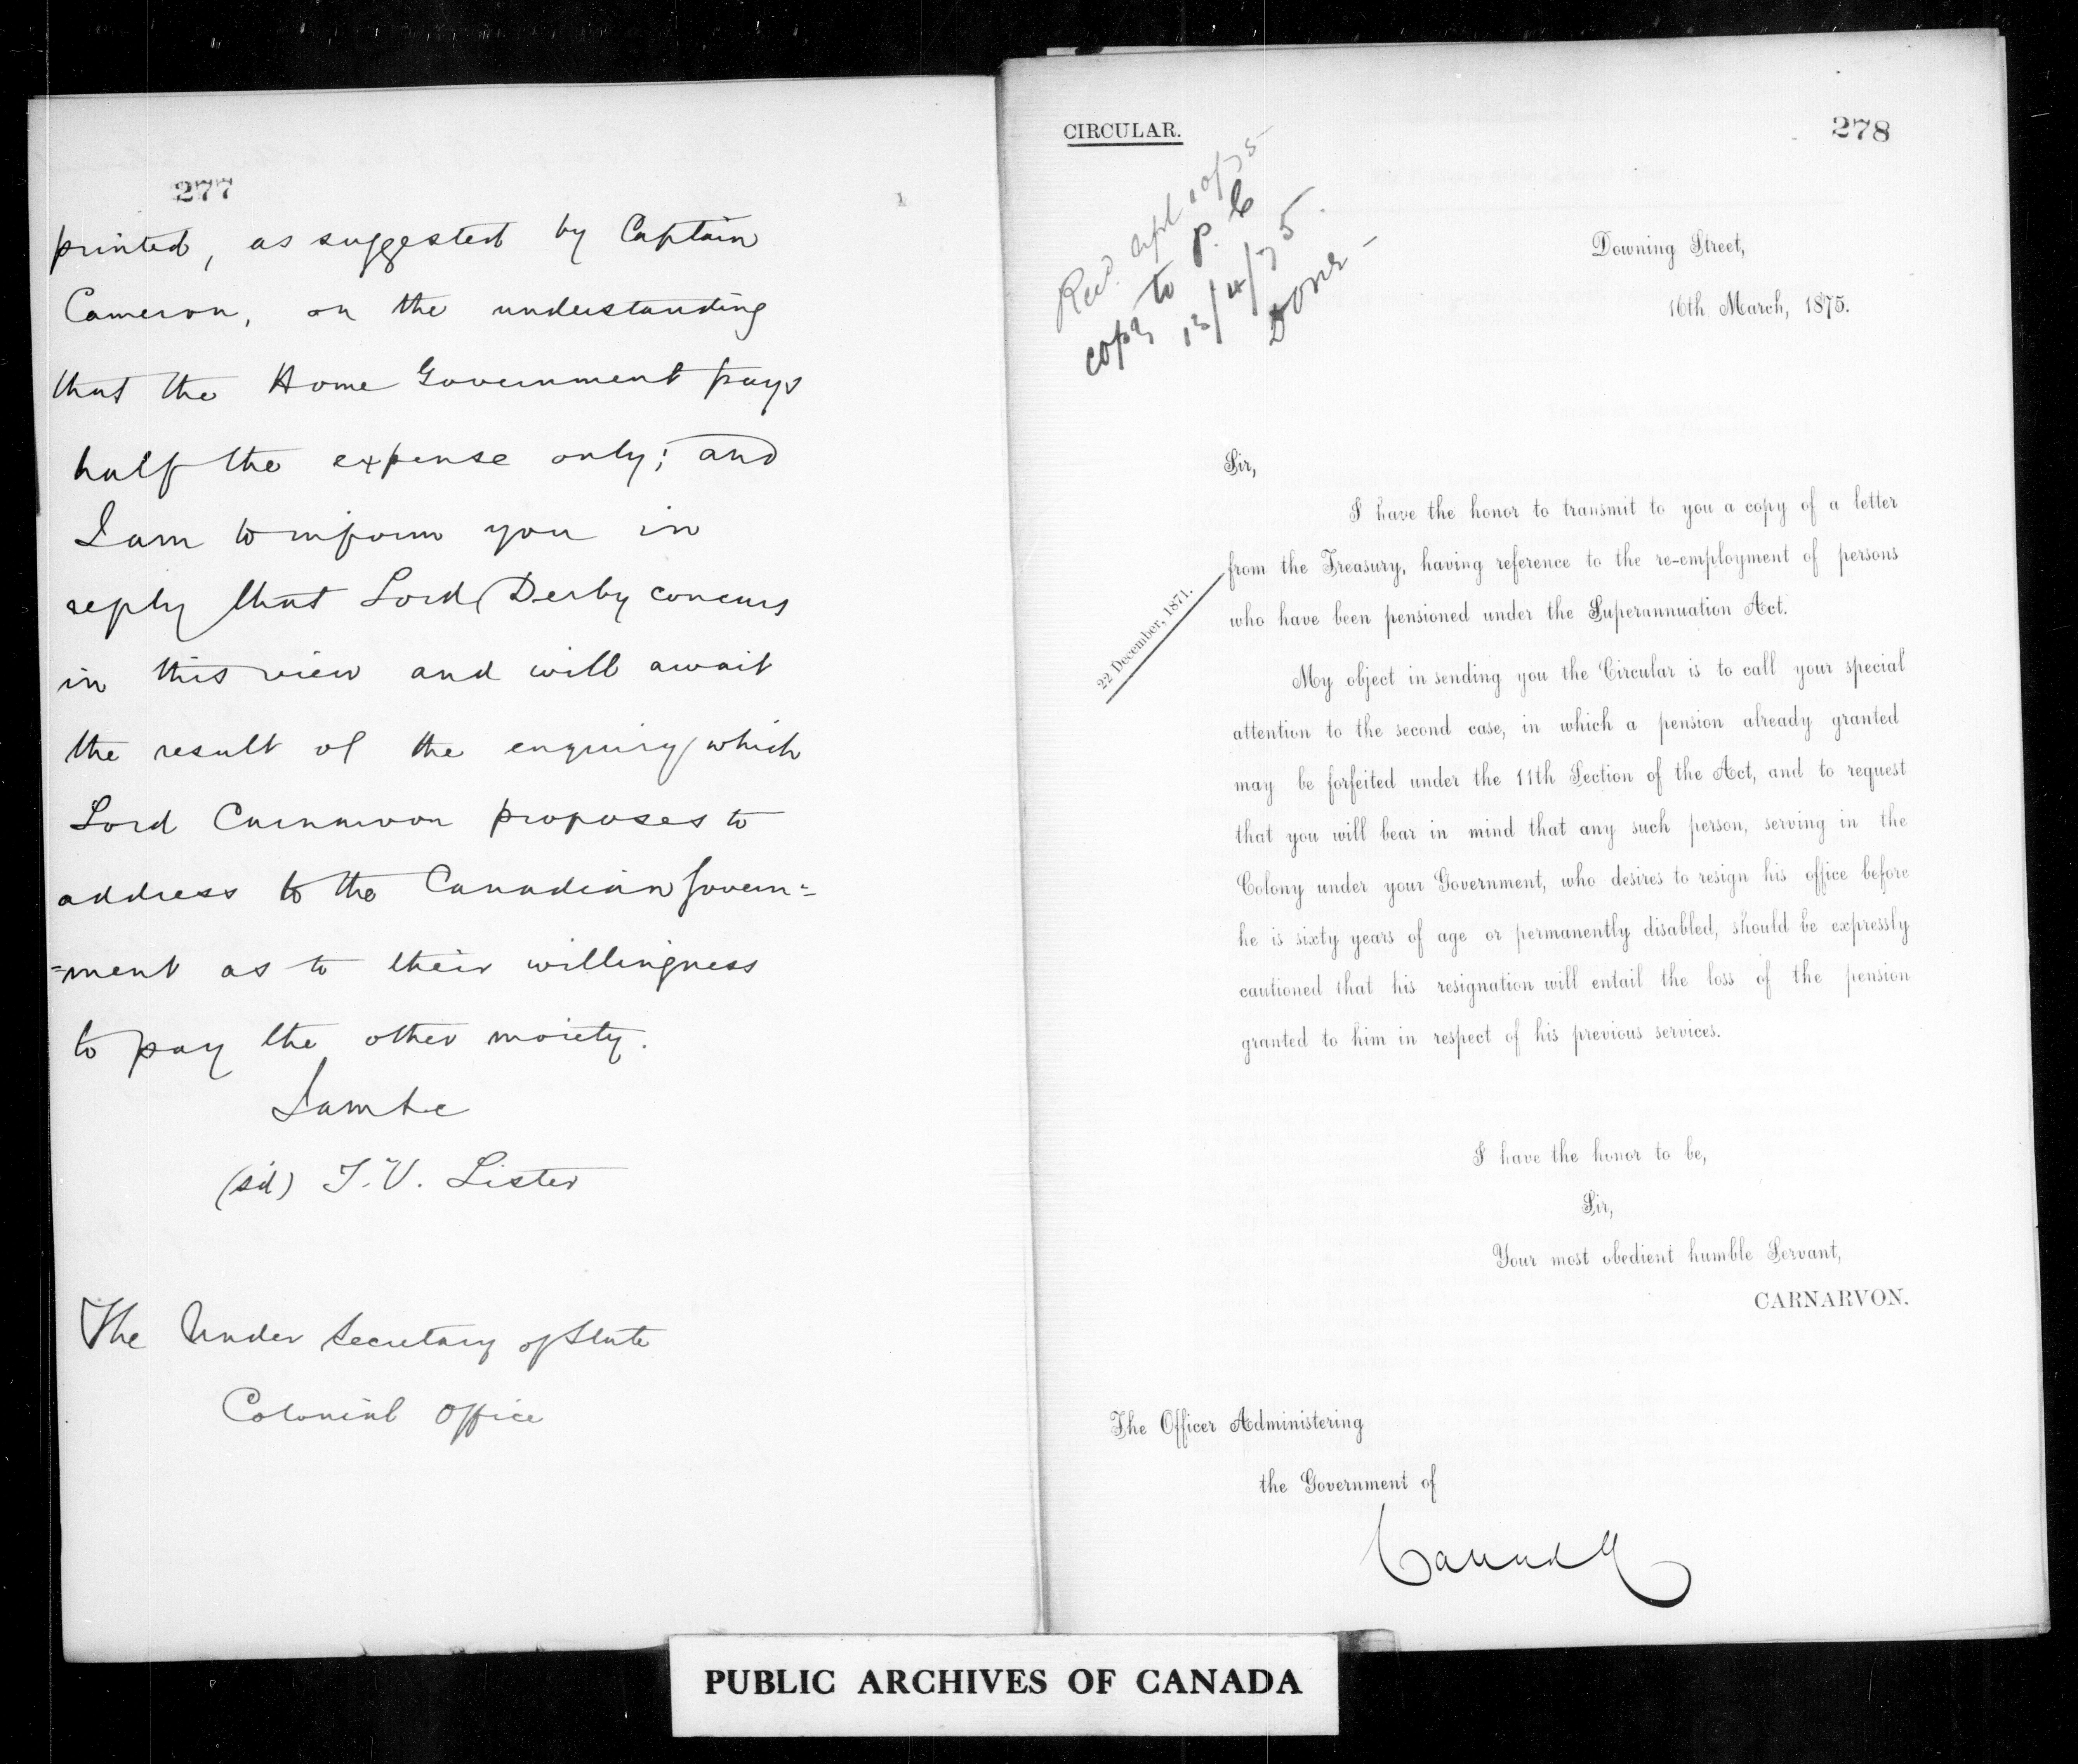 277
printed, as suggested by Captain
Cameron, on the understanding
that the Home Government pays
half the expense only; and
I am to inform you in
reply that Lord Derby concurs
in this view and will await
the result of the enquiry which
Lord Carnarvon proposes to
address to the Canadian Govern=
=ment as to their willingness
to pay the other moiety.
I am &c
(sd) T. V. Lister
The Under Secretary of State
Colonial Office
CIRCULAR.
278
Recd. Apl 10/75
copy to P.C
13/4/75.
Done –
Downing Street,
16th March, 1875.
Sir,
I have the honor to transmit to you a copy of a letter
22 December, 1871.
from the Treasury, having reference to the re-employment of persons
who have been pensioned under the Superannuation Act.
My object in sending you the Circular is to call your special
attention to the second case, in which a pension already granted
may be forfeited under the 11th Section of the Act, and to request
that you will bear in mind that any such person, serving in the
Colony under your Government, who desires to resign his office before
he is sixty years of age or permanently disabled, should be expressly
cautioned that his resignation will entail the loss of the pension
granted to him in respect of his previous services.
I have the honor to be,
Sir,
Your most obedient humble Servant,
CARNARVON.
The Officer Administering
the Government of
Canada
PUBLIC ARCHIVES OF CANADA